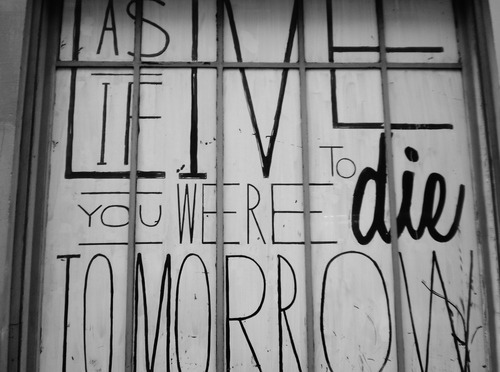 LIVE
AS
IF
YOU WERE TO die
TOMORROW